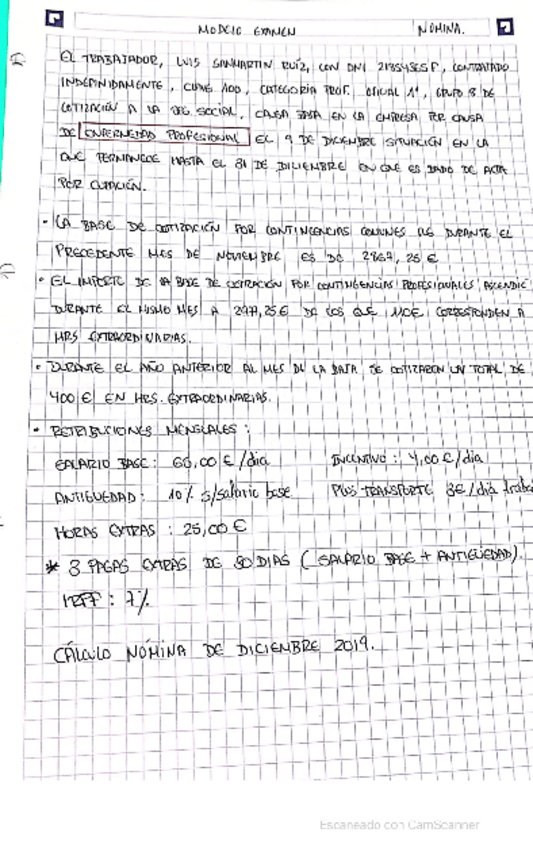 MODELO EXAMEN NÓMINA.
EL TRABAJADOR, LUIS SANMARTIN RUÍZ, CON DNI CONTRATADO
INDEFINIDAMENTE, CLAVE 100, CATEGORÍA PROF. OFICIAL 1ª, GRUPO 8 DE
COTIZACIÓN A LA SEG. SOCIAL, CAUSA BAJA EN LA EMPRESA POR CAUSA
DE ENFERMEDAD PROFESIONAL EL 9 DE DICIEMBRE SITUACIÓN EN LA
QUE PERMANECE HASTA EL 31 DE DICIEMBRE EN QUE ES DADO DE ALTA
POR CURACIÓN.
· LA BASE DE COTIZACIÓN POR CONTINGENCIAS COMUNES DURANTE EL
PRECEDENTE MES DE NOVIEMBRE ES DE 2867,25 €
· EL IMPORTE DE LA BASE DE COTIZACIÓN POR CONTINGENCIAS PROFESIONALES ASCENDIÓ
DURANTE EL MISMO MES A 2977,25€ DE LOS QUE 110€ CORRESPONDEN A
HRS EXTRAORDINARIAS.
· DURANTE EL AÑO ANTERIOR AL MES DE LA BAJA SE COTIZARON UN TOTAL DE
400 € EN HRS. EXTRAORDINARIAS.
· RETRIBUCIONES MENSUALES:
SALARIO BASE: 60,00 €/dia INCENTIVO: 4,00 €/dia
ANTIGUEDAD: 10% s/salario base PLUS TRANSPORTE 3€/dia traba
HORAS EXTRAS: 25,00 €
* 3 PAGAS EXTRAS DE 30 DIAS (SALARIO BASE + ANTIGÜEDAD).
IRPF: 7%
CÁLCULO NÓMINA DE DICIEMBRE 2019.
Escaneado con CamScanner